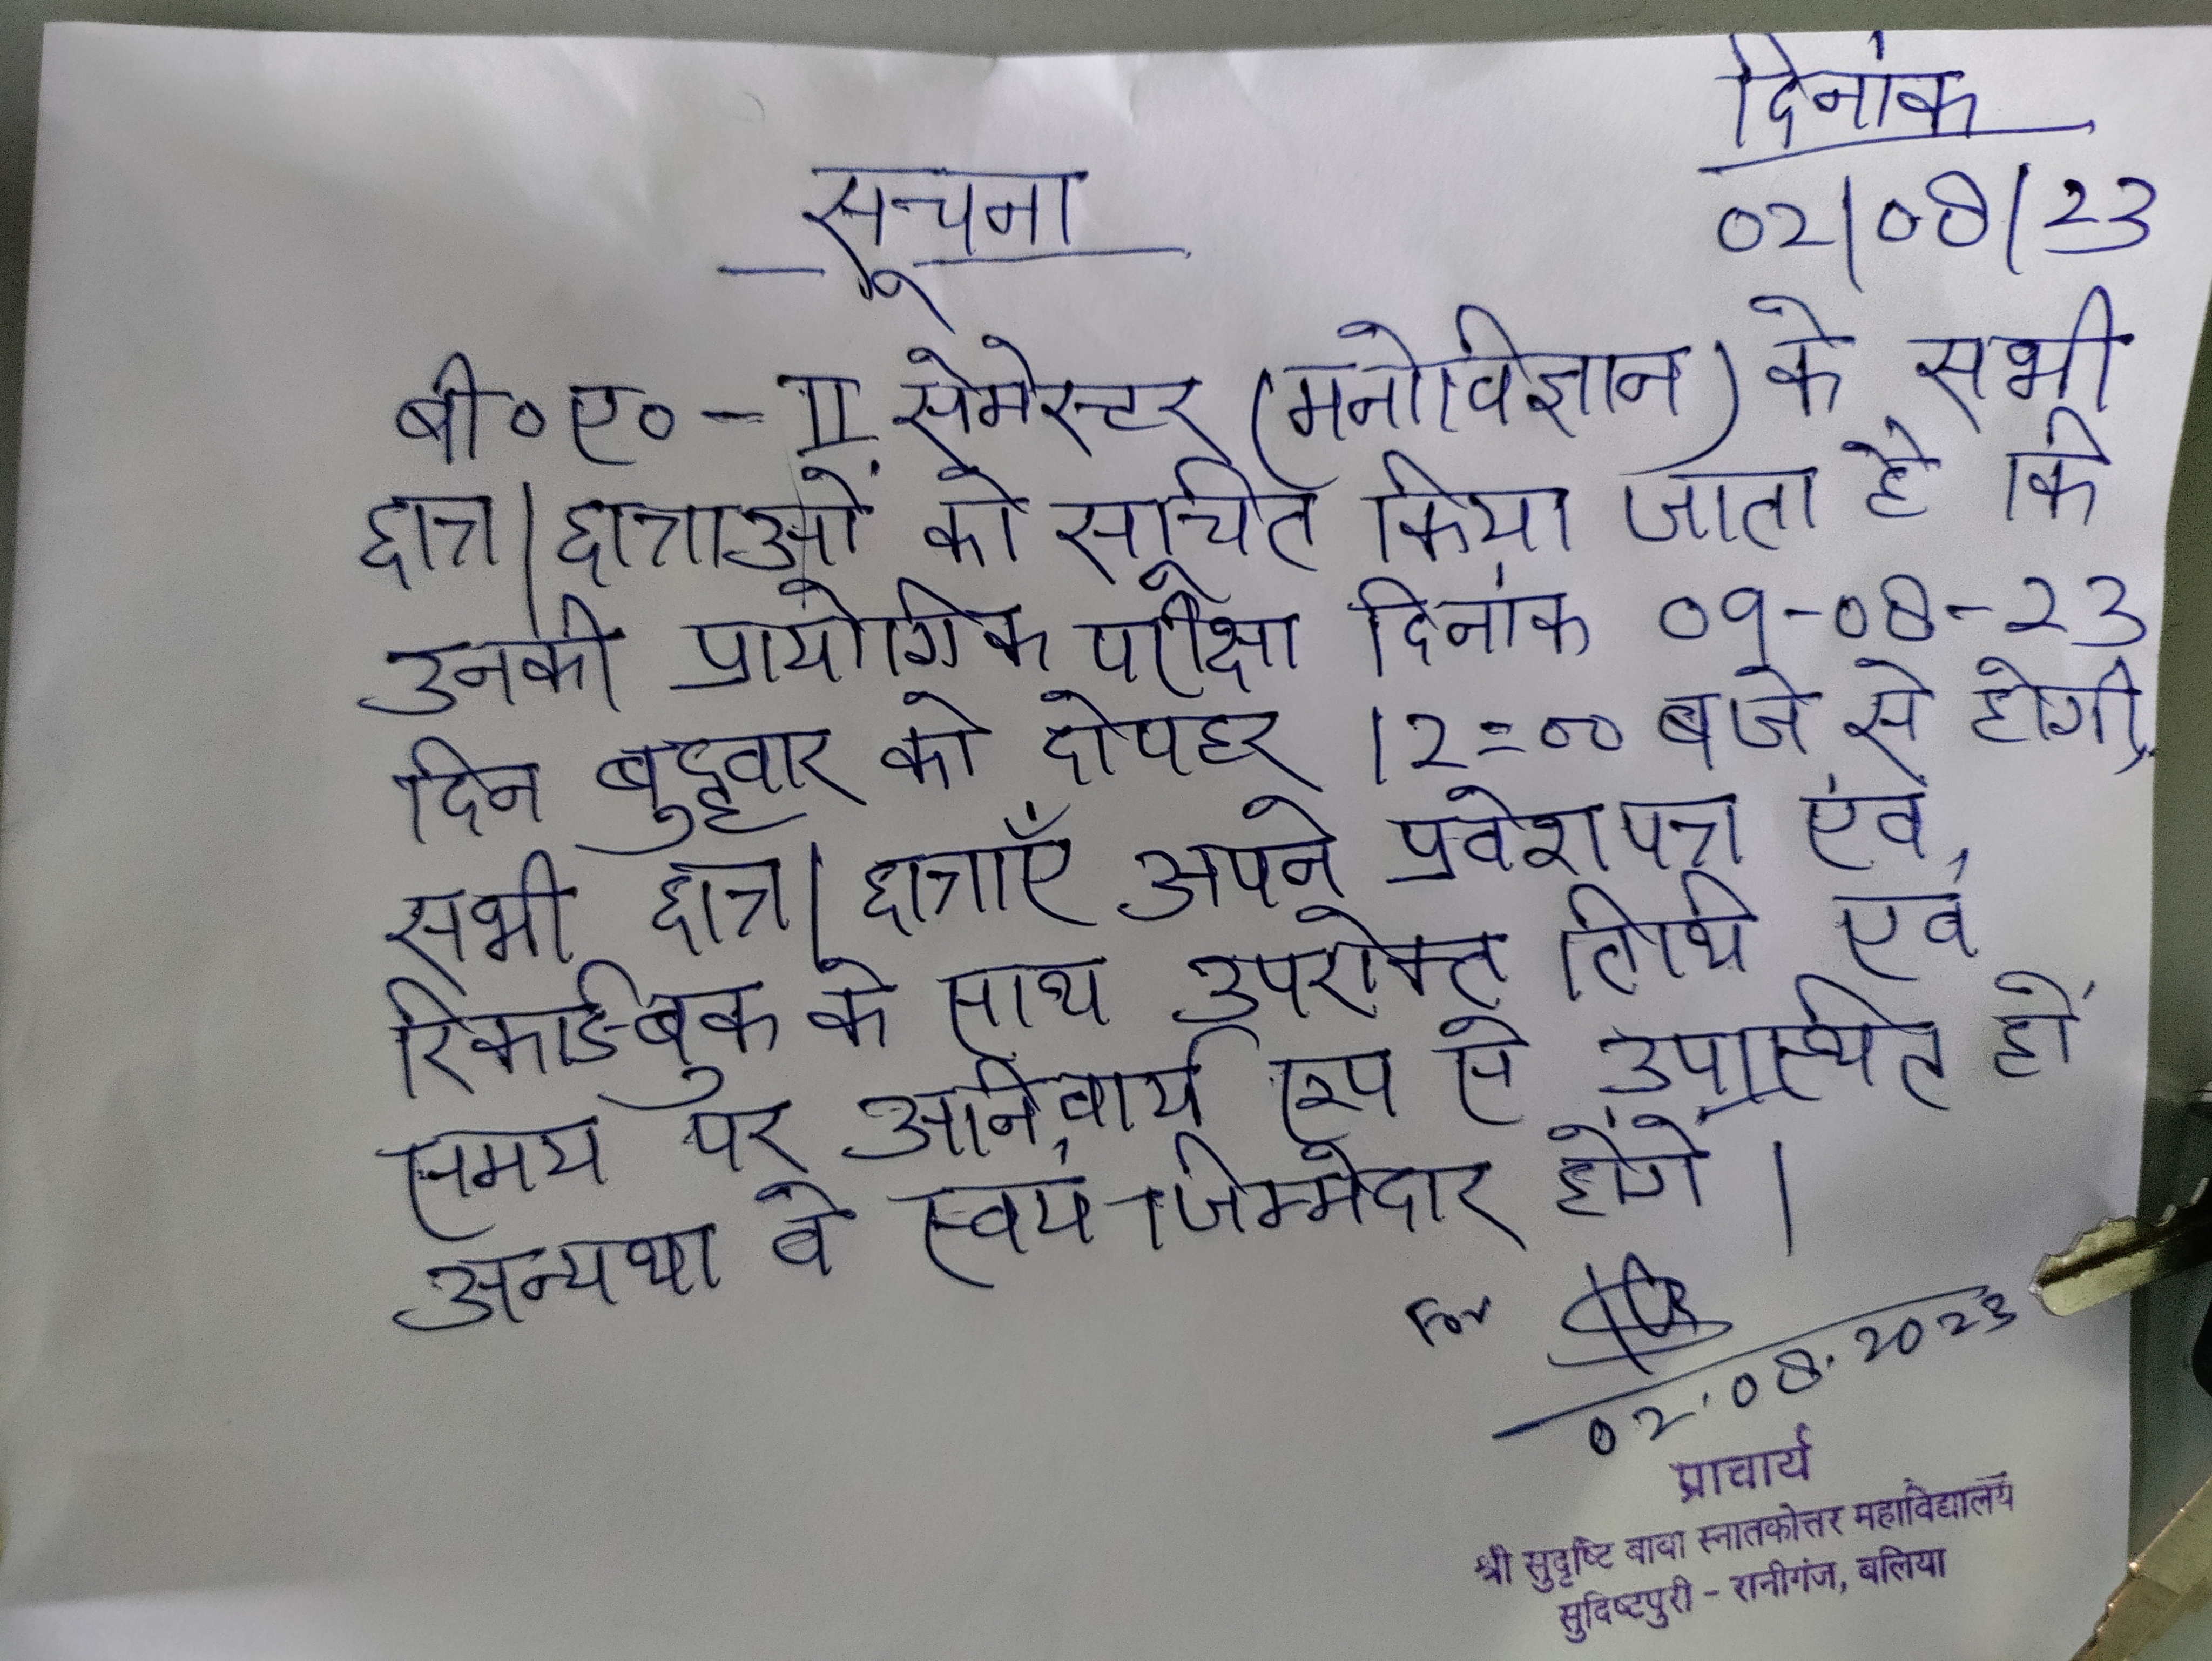 दिनांक
02/08/23
सूचना
बी०ए० - II सेमेस्टर (मनोविज्ञान) के सभी
छात्र/छात्राओं को सूचित किया जाता है कि
उनकी प्रायोगिक परीक्षा दिनांक 09-08-23
दिन बुद्धवार को दोपहर 12=00 बजे से होगी,
सभी छात्र/छात्राएँ अपने प्रवेशपत्र एंव,
रिकार्डबुक के साथ उपरोक्त तिथि एवं
समय पर अनिवार्य रूप से उपस्थित हों
अन्यथा वे स्वयं जिम्मेदार होंगे ।
For
02.08.2023
प्राचार्य
श्री सुदृष्टि बाबा स्नातकोत्तर महाविद्यालय
सुदिष्टपुरी - रानीगंज, बलिया